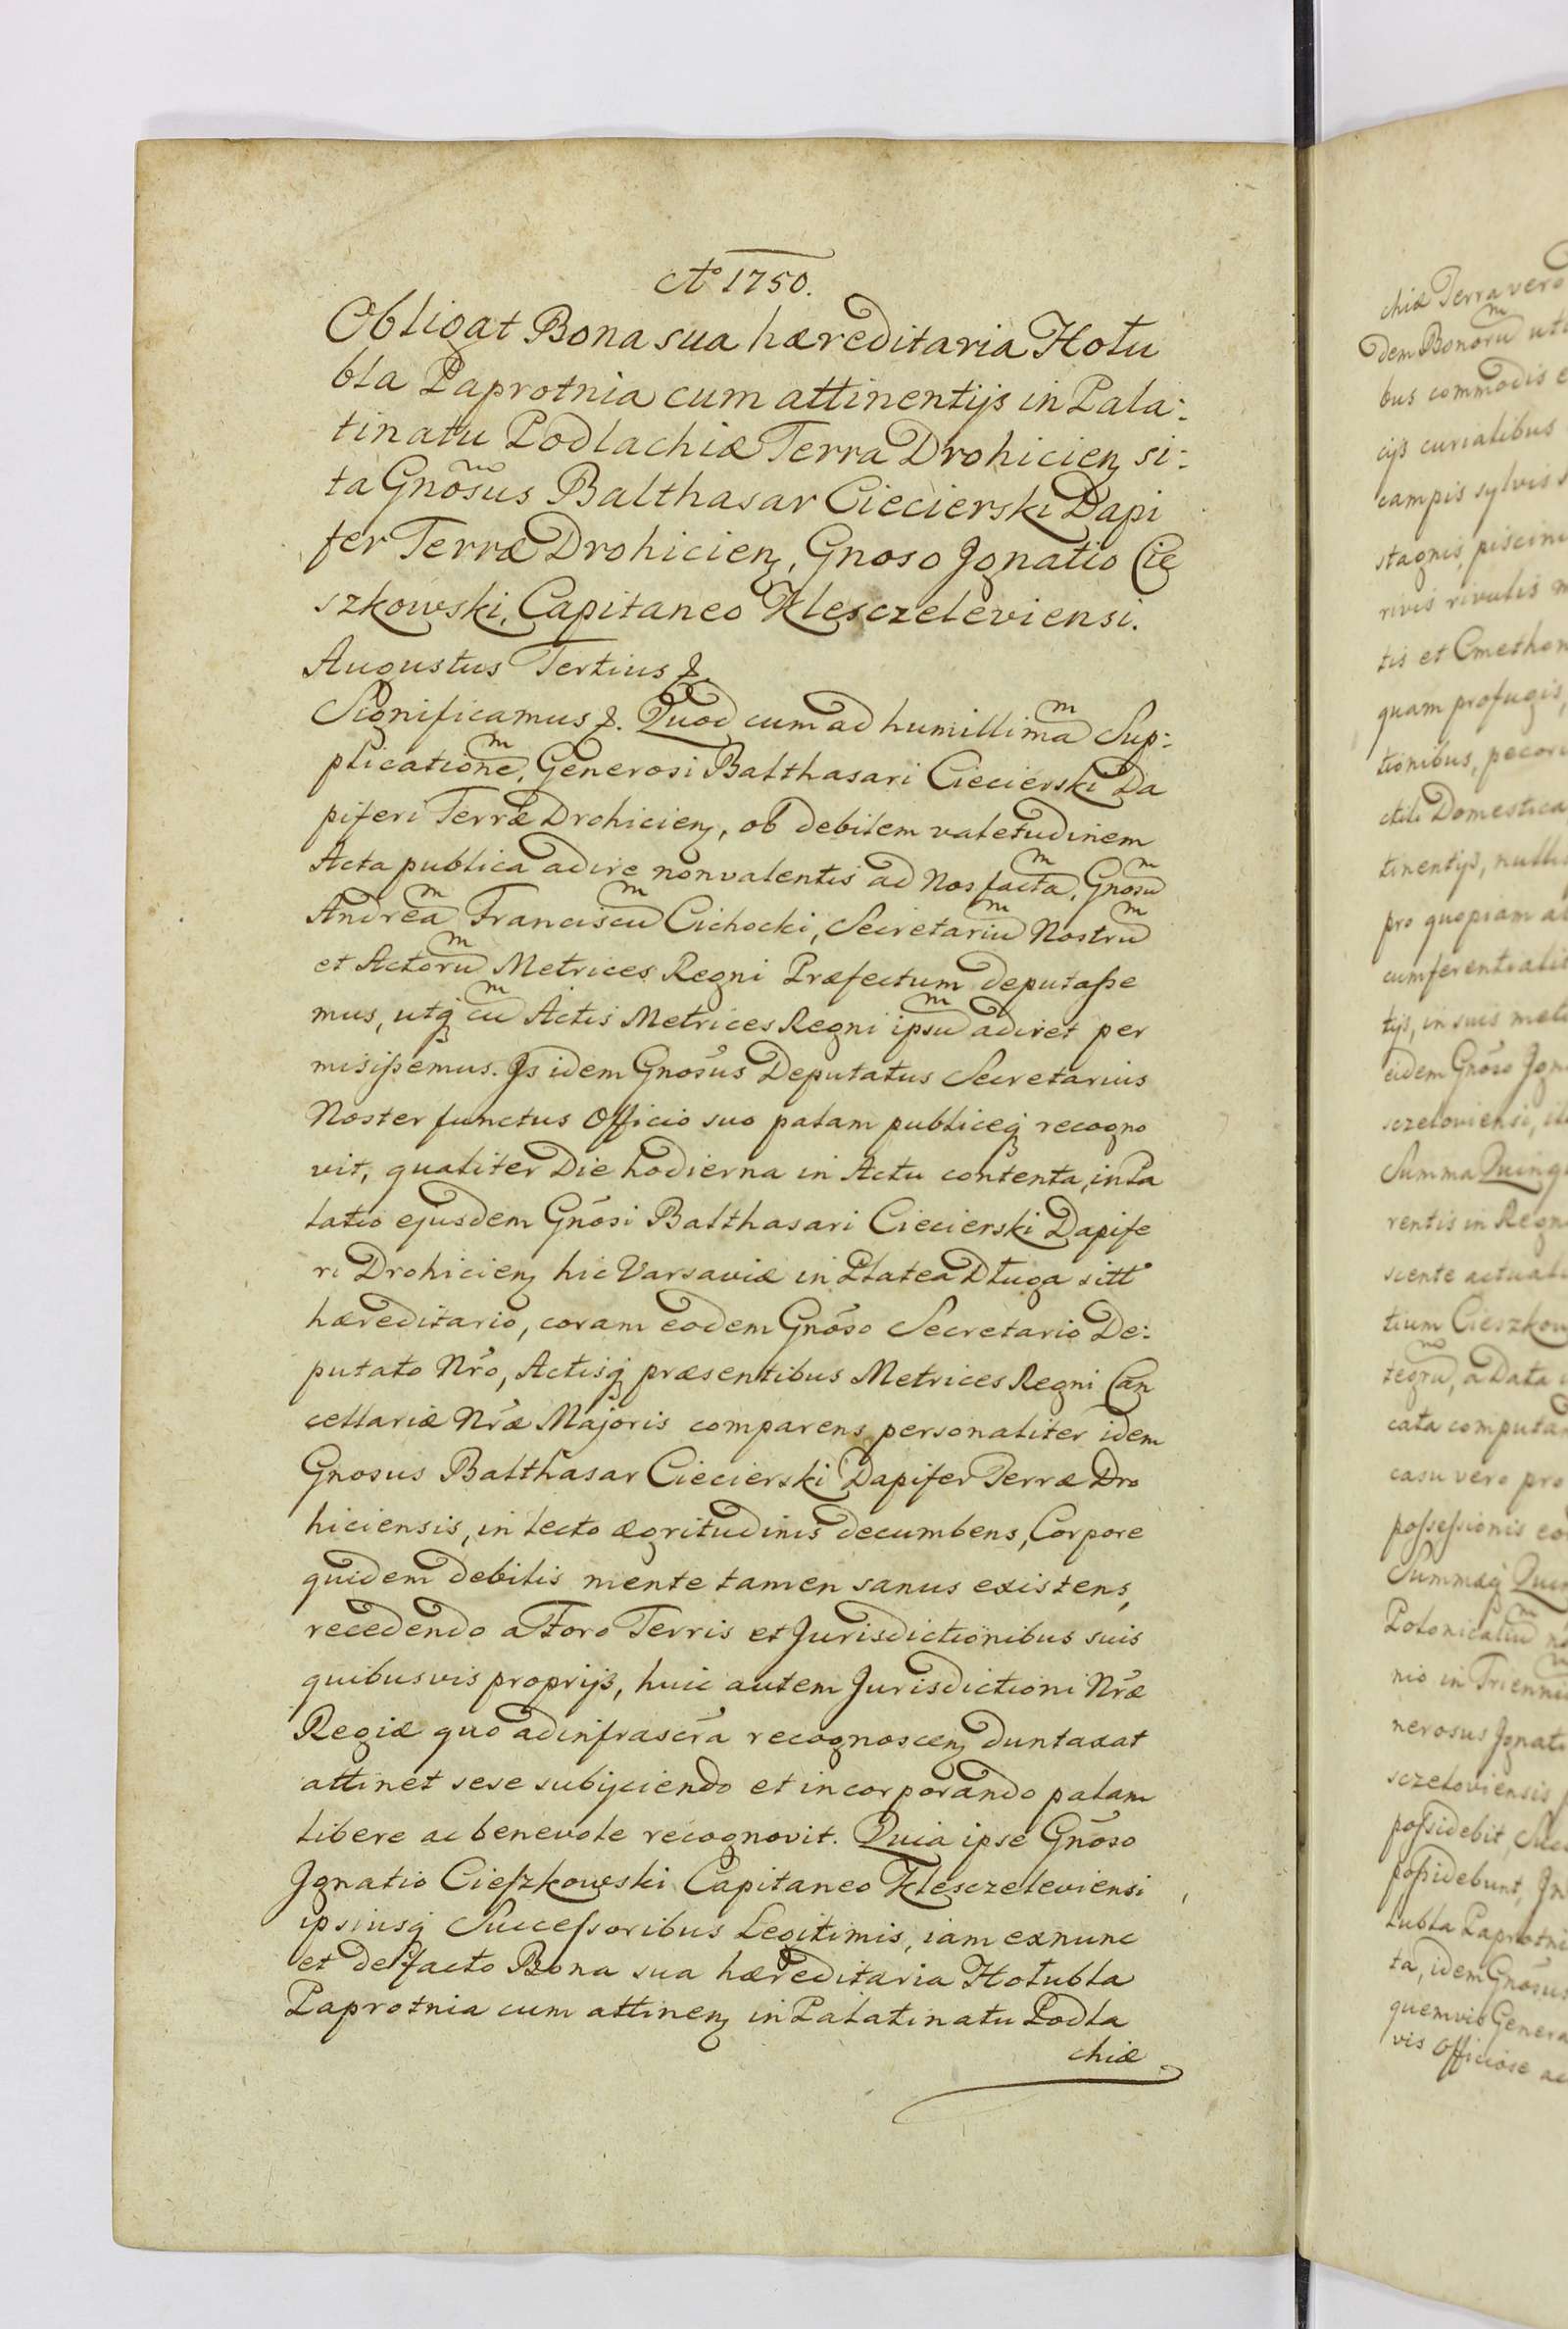 Aº 1750.
Obligat Bona sua hæreditaria Hołu
bla Paprotnia cum attinentijs in Pala:
tinatu Podlachiæ Terra Drohicien si:
ta Gnõsus Balthasar Ciecierski Dapi
fer Terræ Drohicien, Gnoso Jgnatio Cie
szkowski, Capitaneo Klesczeleviensi.
Augustus Tertius &.
Significamus &. Quod cum ad humillimaͫ Sup:
plicationeͫ, Generosi Balthasari Ciecierski Da
piferi Terræ Drohicien, ob debilem valetudinem
Acta publica adire non valentis ad Nos factaͫ, Gnosuͫ
Andreaͫ Franciscuͫ Cichocki, Secretariuͫ Nostruͫ
et Actoruͫ Metrices Regni Præfectum deputasse
mus, utq cuͫ Actis Metrices Regni ipsuͫ adiret per
misissemus. Js idem Gnõsus Deputatus Secretarius
Noster functus Officio suo palam publiceq recogno
vit, qualiter Die hodierna in Actu contenta, in Pa
latio ejusdem Gnõsi Balthasari Ciecierski Dapife
ri Drohicien hic Varsaviæ in Platea Długa sitto
hæreditario, coram eodem Gnõso Secretario De:
putato Nr̃o, Actisq præsentibus Metrices Regni Can
cellariæ Nr̃æ Majoris comparens personaliter idem
Gnosus Balthasar Ciecierski Dapifer Terræ Dro
hiciensis, in lecto ægritudinis decumbens, Corpore
quidem debilis mente tamen sanus existens,
recedendo a Foro Terris et Jurisdictionibus suis
quibusvis proprijs, huic autem Jurisdictioni Nr̃æ
Regiæ quo ad infrascr̃a recognoscen duntaxat
attinet sese subijciendo et incorporando palam
libere ac benevole recognovit. Quia ipse Gnõso
Jgnatio Cieszkowski Capitaneo Klesczeleviensi
ipsiusq Successoribus Legitimis, iam exnunc
et de facto Bona sua hæreditaria Hołubla
Paprotnia cum attinen in Palatinatu Podla
chiæ
chiæ Terra vero
dem Bonoruͫ
bus commodis
cijs curialibus
campis sylvis
stagnis, piscini
rivis rivulis
tis et Cmethon
quam profugis,
tionibus, pecori
Domestica
tinentijs, nullis
pro quopiam
cumferentialit
tijs, in suis
eidem Gnõso Jgn
sczeloviensi,
Summa Quinq
rentis in Regn
sciente actuali
tium Cieszkow
tegruͫ, a Data
cata computan
casu vero pro
possessionis
Summæq Quin
Polonicaliuͫ
nio in Trienniuͫ
nerosus Jgnati
sczeloviensis
possidebit,
possidebunt, Jn
lubla Paprotni
ta, idem Gnõsus
quemvis Genera
vis Officiose